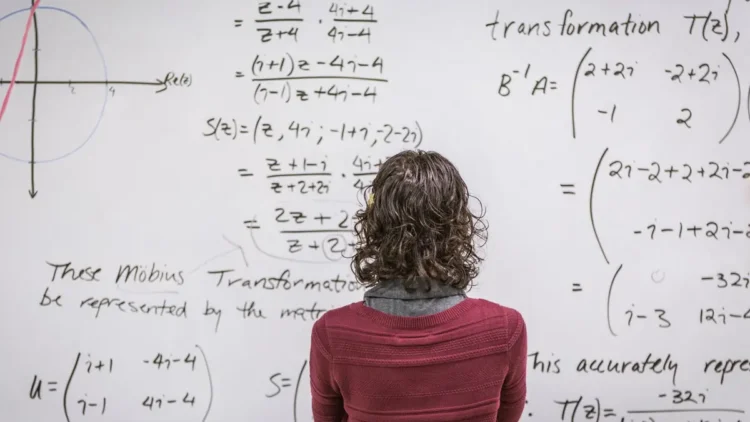 Re(z)
2
4
= z-4/z+4 · 4i+4/4i-4
= (i+1)z-4i-4/(i-1)z+4i-4
S(z)=(z, 4i; -1+i, -2-2i)
= z+1-i/z+2+2i ·
= 2z+2/z+2
These Möbius Transformatio
be represented by the matri
U= ( i+1 -4i-4
i-1 4i-4 )
S= (
transformation T(z),
B⁻¹A= ( 2+2i -2+2i
-1 2 ) (
= ( 2i-2+2+2i-2
-i-1+2i-2
= ( 0 -32i
i-3 12i-4
his accurately repre
T(z)= -32i